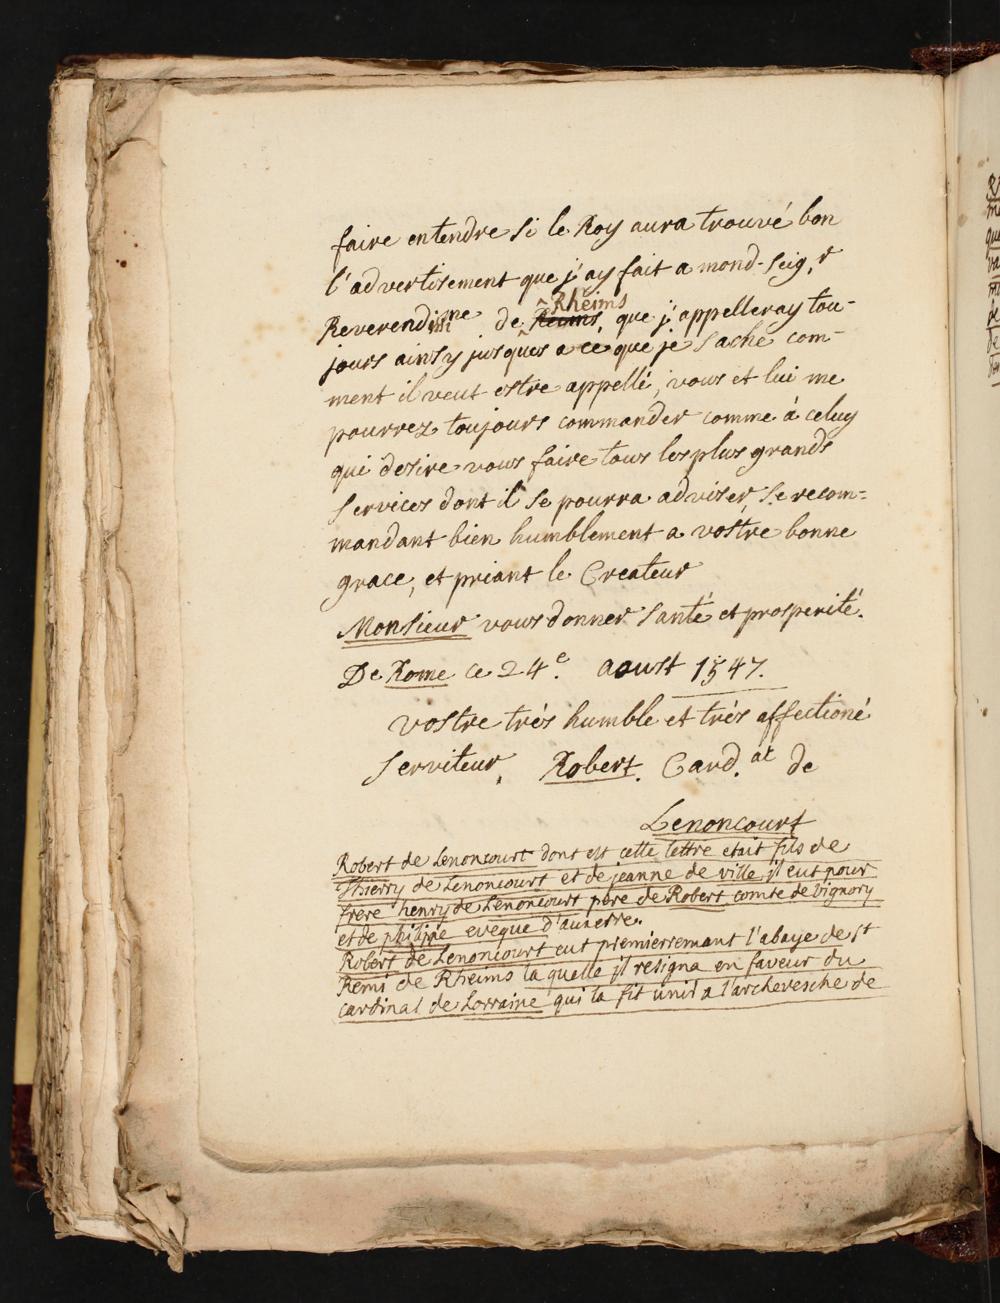 faire entendre si le Roy aura trouvé bon
l'advertisement que j'ay fait a mond-seig,r
Rheims
Reverendiss.me de Reims, que j'appelleray tou-
jours ainsy jusques a ce que je sache com-
ment il veut estre appellé, vous et lui me
pourrez toujours commander comme à celuy
qui desire vous faire tous les plus grands
services dont il se pourra adviser, se recom-
mandant bien humblement a vostre bonne
grace, et priant le Createur
Monsieur vous donner santé et prosperité.
De Rome ce 24.e aoust 1547.
vostre trés humble et trés affectioné
serviteur, Robert. Card.al de
Lenoncourt
Robert de Lenoncourt dont est cette lettre etait fils de
Thierry de Lenoncourt et de jeanne de ville jl eut pour
frere henry de Lenoncourt pere de Robert comte de vignory
et de philippe evêque d'auxerre.
Robert de Lenoncourt eut premierremant l'abaye de st
Remi de Rheims la quelle jl resigna en faveur du
cardinal de Lorraine qui la fit unir a l'archevesche de